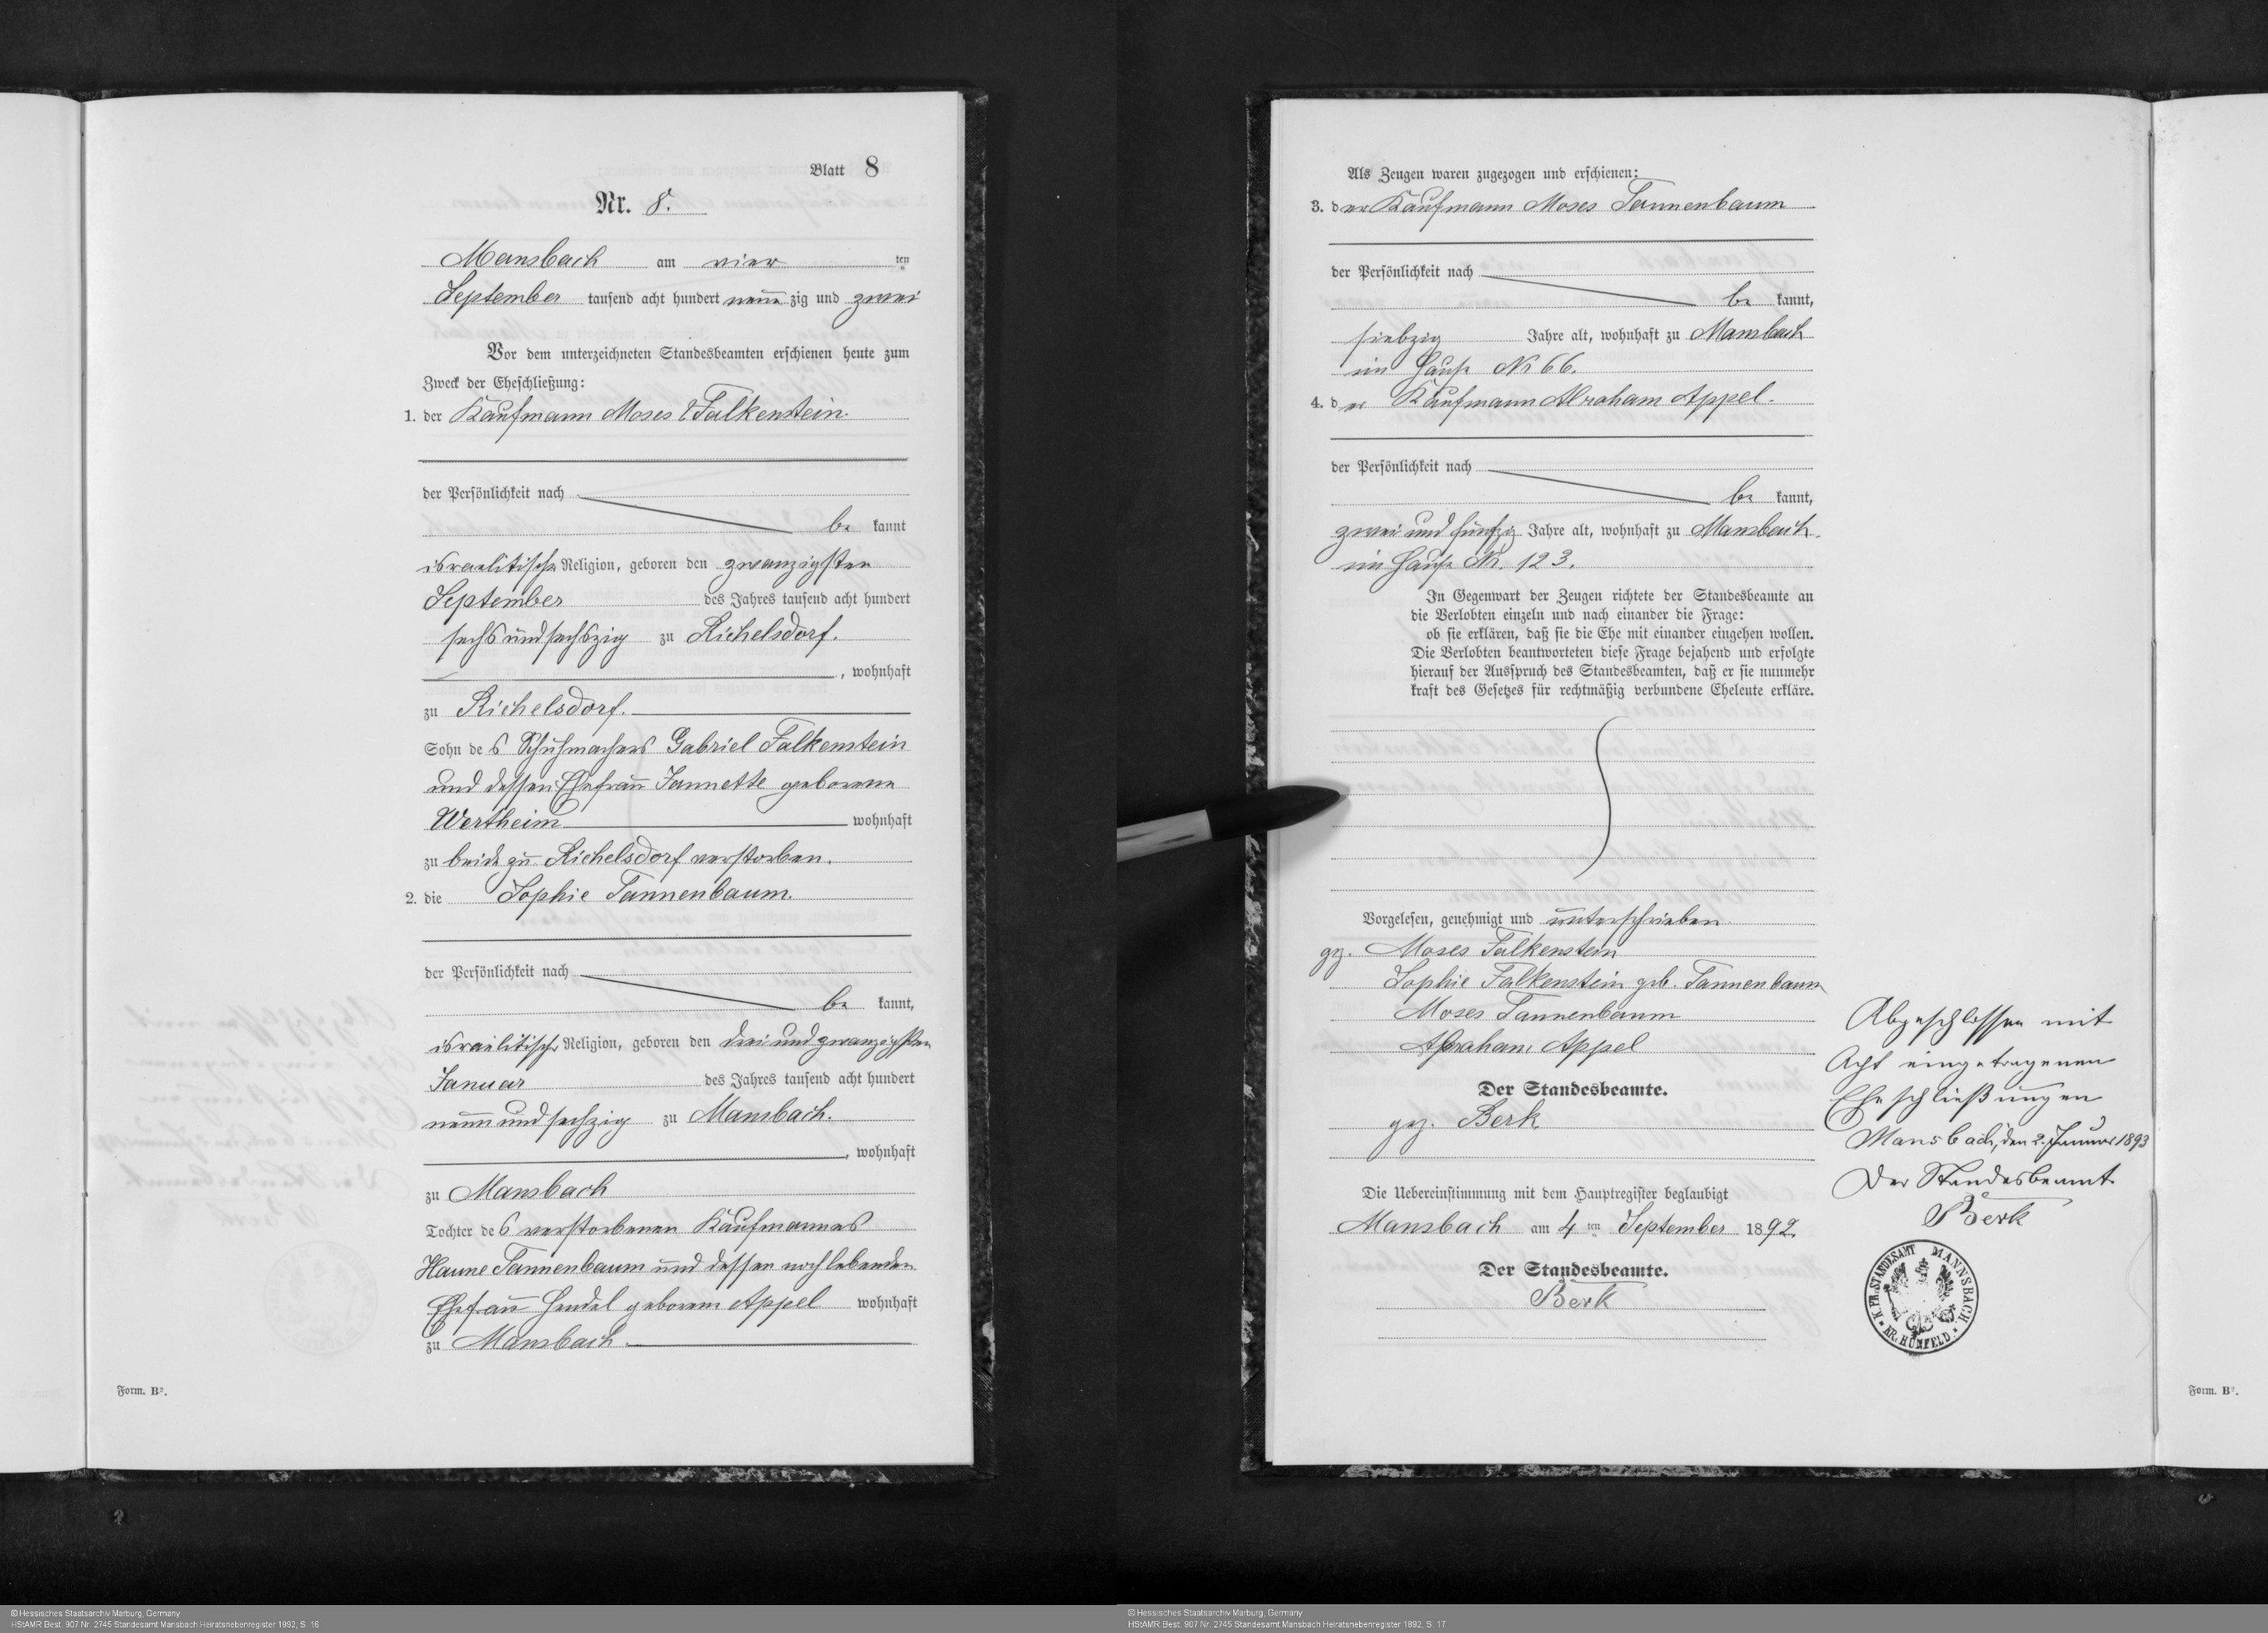 Blatt 8
Nr. 8.
Mansbach am vier ten
September tausend acht hundert neun zig und zwei
Vor dem unterzeichneten Standesbeamten erschienen heute zum
Zweck der Eheschließung:
1. der Kaufmann Moses Falkenstein.
der Persönlichkeit nach
be kannt
israelitischer Religion, geboren den zwanzigsten
September des Jahres tausend acht hundert
sechs und sechszig zu Richelsdorf.
, wohnhaft
zu Richelsdorf.
Sohn des Schuhmachers Gabriel Falkenstein
und dessen Ehefrau Jannette geborene
Wertheim wohnhaft
zu beide zu Richelsdorf verstorben.
2. die Sophie Tannenbaum.
der Persönlichkeit nach
be kannt,
israelitischer Religion, geboren den drei und zwanzigsten
Januar des Jahres tausend acht hundert
neun und sechzig zu Mansbach.
, wohnhaft
zu Mansbach
Tochter des verstorbenen Kaufmannes
Haune Tannenbaum und dessen noch lebenden
Ehefrau Hendel geborene Appel wohnhaft
zu Mansbach
Form. B².
Als Zeugen waren zugezogen und erschienen:
3. der Kaufmann Moses Tannenbaum
der Persönlichkeit nach
be kannt,
siebzig Jahre alt, wohnhaft zu Mansbach
im Hause Nr 66.
4. der Kaufmann Abraham Appel.
der Persönlichkeit nach
be kannt,
zwei und fünfzig Jahre alt, wohnhaft zu Mansbach.
im Hause Nr. 123.
In Gegenwart der Zeugen richtete der Standesbeamte an
die Verlobten einzeln und nach einander die Frage:
ob sie erklären, daß sie die Ehe mit einander eingehen wollen.
Die Verlobten beantworteten diese Frage bejahend und erfolgte
hierauf der Ausspruch des Standesbeamten, daß er sie nunmehr
kraft des Gesetzes für rechtmäßig verbundene Eheleute erkläre.
Vorgelesen, genehmigt und unterschrieben
gz. Moses Falkenstein
Sophie Falkenstein geb. Tannenbaum
Moses Tannenbaum
Abraham Appel
Der Standesbeamte.
gez. Berk
Die Uebereinstimmung mit dem Hauptregister beglaubigt
Mansbach am 4 ten September 1892.
Der Standesbeamte.
Berk
Abgeschlossen mit
Acht eingetragenen
Eheschließungen
Mansbach, den 2. Januar 1893
Der Standesbeamte
Berk
K. PR. STANDESAMT MANNSBACH
KR. HÜNFELD.
Form. B².
© Hessisches Staatsarchiv Marburg, Germany
HStAMR Best. 907 Nr. 2745 Standesamt Mansbach Heiratsnebenregister 1892, S. 16
© Hessisches Staatsarchiv Marburg, Germany
HStAMR Best. 907 Nr. 2745 Standesamt Mansbach Heiratsnebenregister 1892, S. 17